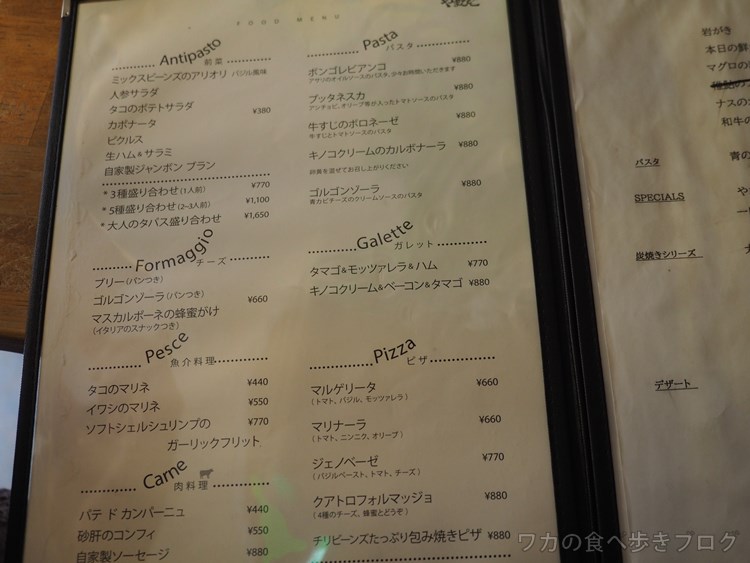 FOOD MENU
Antipasto 前菜
ミックスビーンズのアリオリ バジル風味
人参サラダ
タコのポテトサラダ ¥380
カポナータ
ピクルス
生ハム&サラミ
自家製ジャンボン ブラン
*3種盛り合わせ(1人前) ¥770
*5種盛り合わせ(2~3人前) ¥1,100
*大人のタパス盛り合わせ ¥1,650
Formaggio チーズ
ブリー(パンつき)
ゴルゴンゾーラ(パンつき) ¥660
マスカルポーネの蜂蜜がけ
(イタリアのスナックつき)
Pesce 魚介料理
タコのマリネ ¥440
イワシのマリネ ¥550
ソフトシェルシュリンプの ¥770
ガーリックフリット
Carne 肉料理
パテ ド カンパーニュ ¥440
砂肝のコンフィ ¥550
自家製ソーセージ ¥880
Pasta パスタ
ボンゴレビアンコ ¥880
アサリのオイルソースのパスタ、少々お時間いただきます
プッタネスカ ¥880
アンチョビ、オリーブ等が入ったトマトソースのパスタ
牛すじのボロネーゼ ¥880
牛すじとトマトソースのパスタ
キノコクリームのカルボナーラ ¥880
卵黄を混ぜてお召し上がりください
ゴルゴンゾーラ ¥880
青カビチーズのクリームソースのパスタ
Galette ガレット
タマゴ&モッツァレラ&ハム ¥770
キノコクリーム&ベーコン&タマゴ ¥880
Pizza ピザ
マルゲリータ ¥660
(トマト、バジル、モッツァレラ)
マリナーラ ¥660
(トマト、ニンニク、オリーブ)
ジェノベーゼ ¥770
(バジルペースト、トマト、チーズ)
クアトロフォルマッジョ ¥880
(4種のチーズ、蜂蜜とどうぞ)
チリビーンズたっぷり包み焼きピザ ¥880
岩がき
本日の鮮
マグロの
ナスの
和牛の
パスタ 青の
SPECIALS や
炭焼きシリーズ
デザート
ワカの食べ歩きブログ